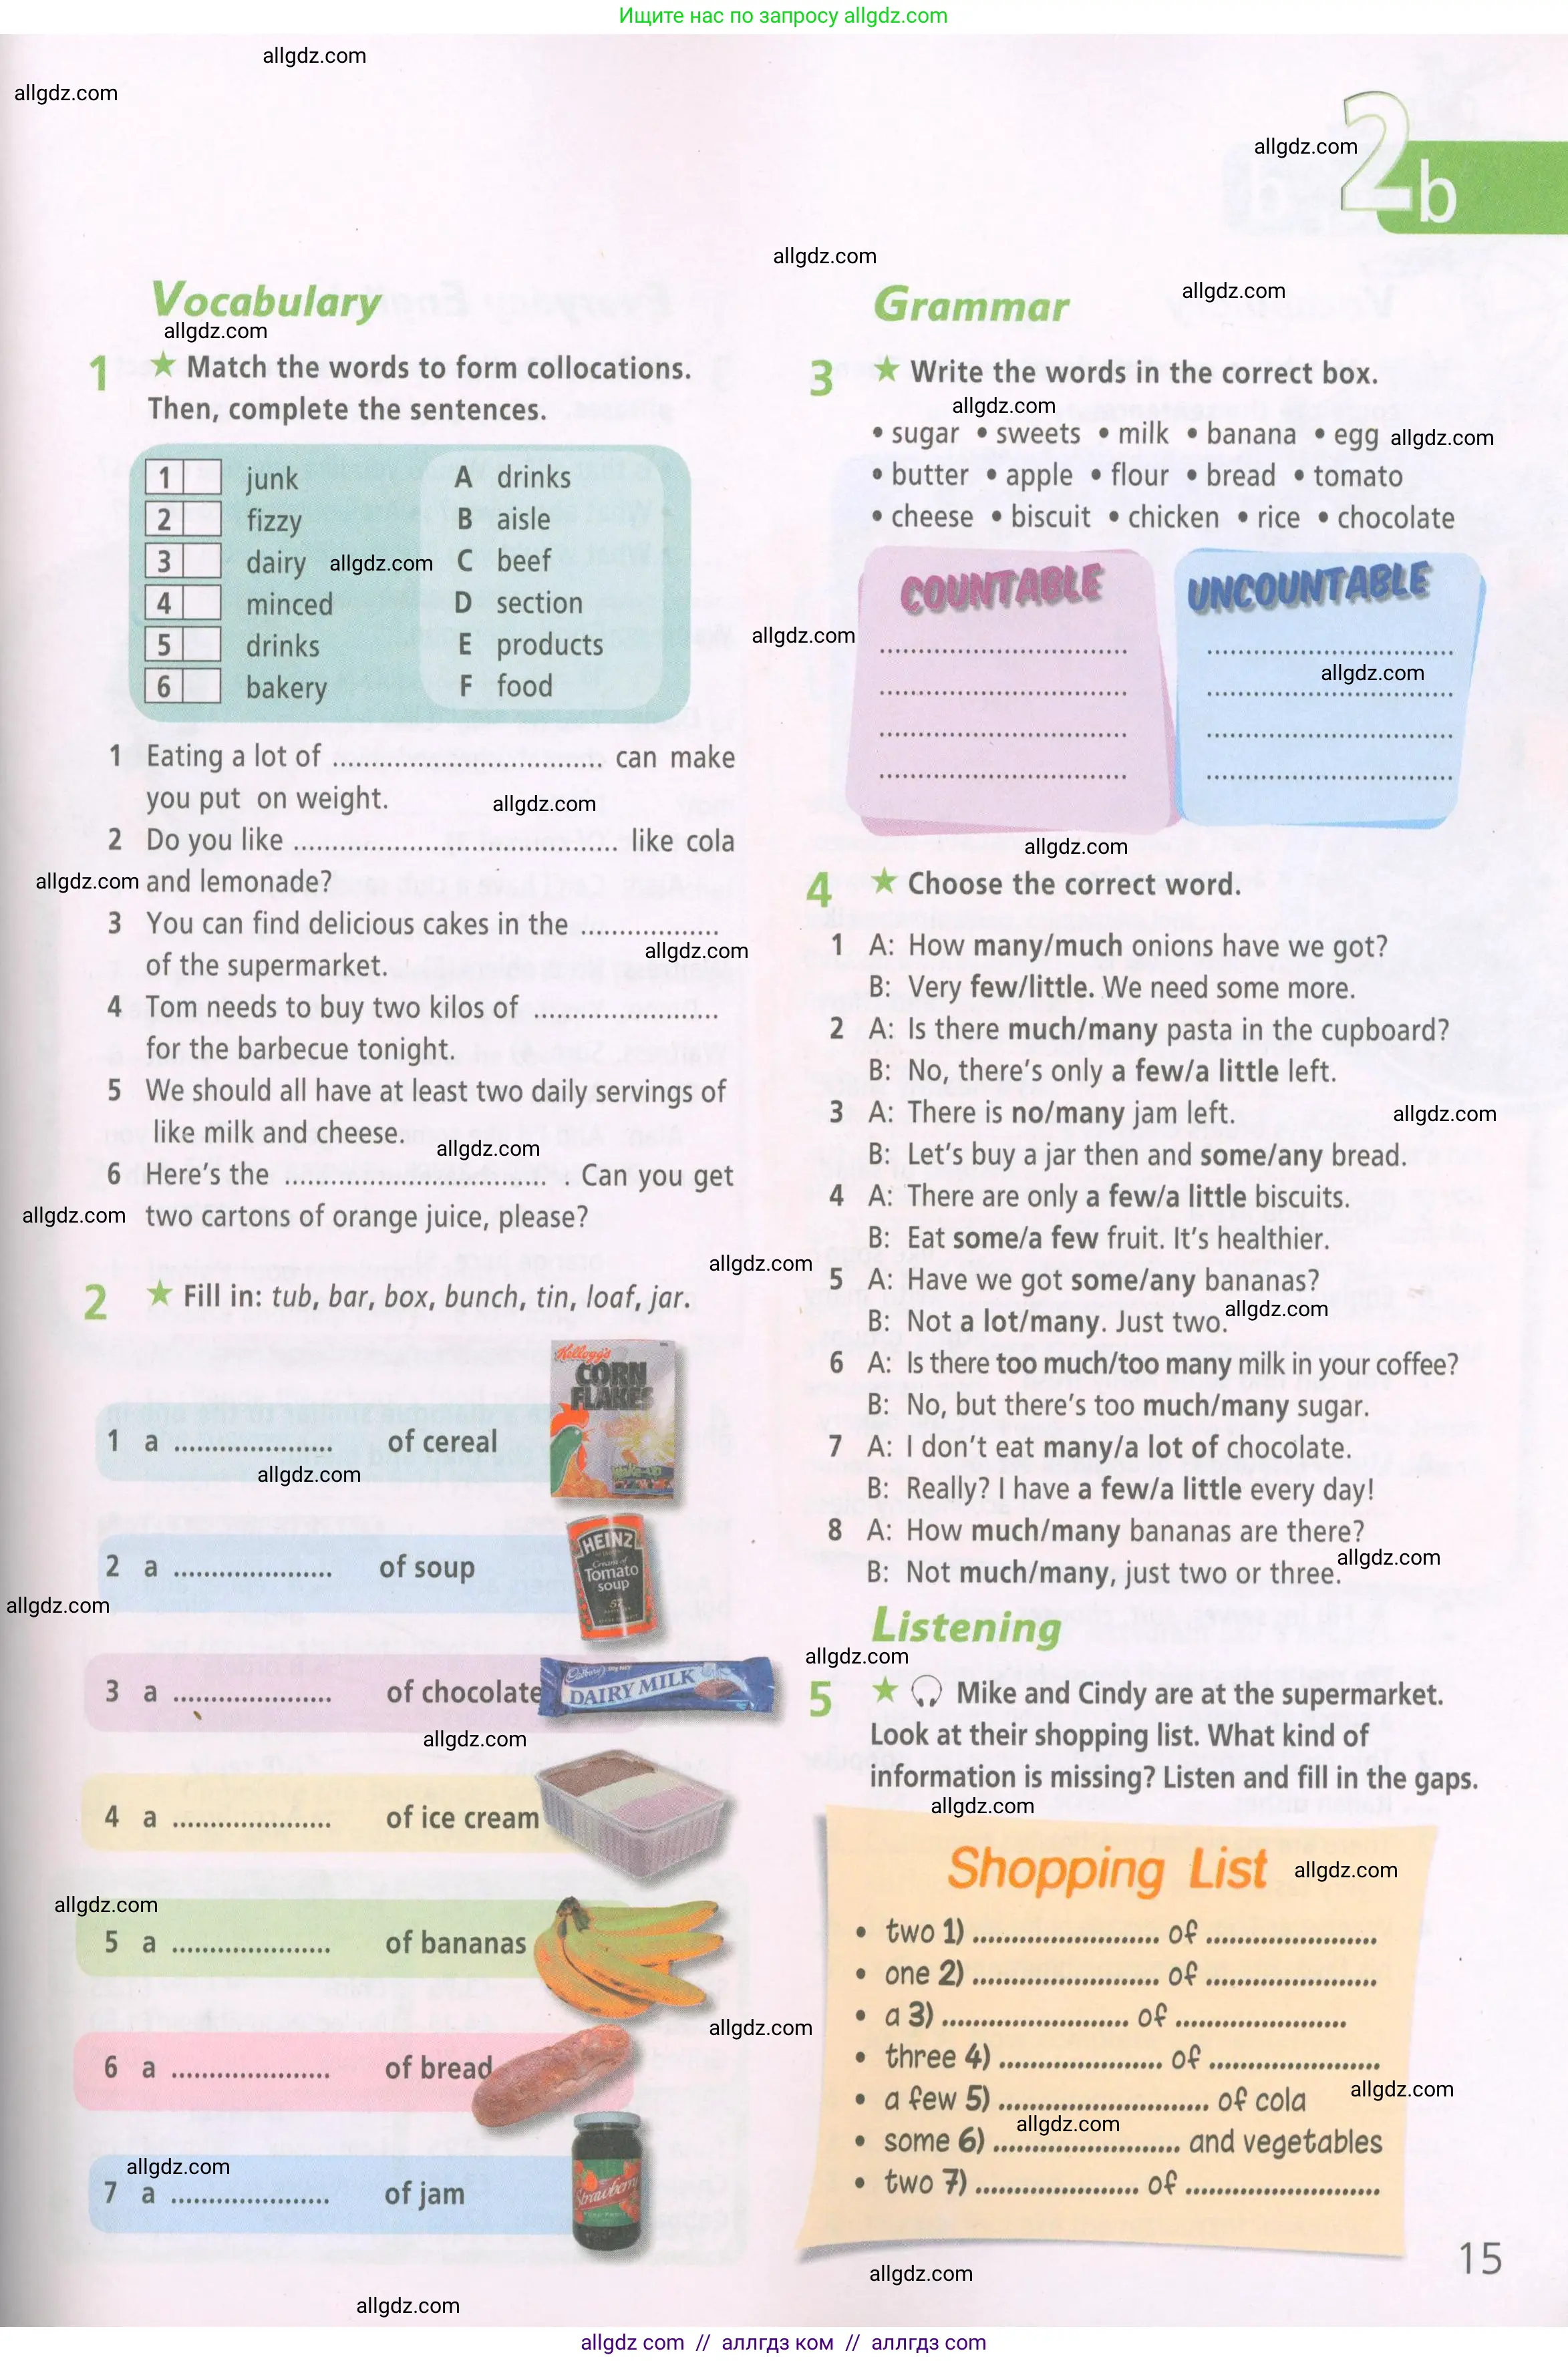 Ищите нас по запросу allgdz.com
allgdz.com
allgdz.com
allgdz.com
2b
allgdz.com
allgdz.com
Vocabulary
allgdz.com
1 ★ Match the words to form collocations.
Then, complete the sentences.
1 junk A drinks
2 fizzy B aisle
3 dairy allgdz.com C beef
4 minced D section
5 drinks E products
6 bakery F food
1 Eating a lot of ................................... can make
you put on weight.
allgdz.com
2 Do you like .......................................... like cola
allgdz.com and lemonade?
3 You can find delicious cakes in the ..................
of the supermarket.
allgdz.com
4 Tom needs to buy two kilos of ........................
for the barbecue tonight.
5 We should all have at least two daily servings of
like milk and cheese.
allgdz.com
6 Here's the .................................. . Can you get
allgdz.com two cartons of orange juice, please?
allgdz.com
2 ★ Fill in: tub, bar, box, bunch, tin, loaf, jar.
Kellogg's
CORN
FLAKES
1 a ..................... of cereal
allgdz.com
HEINZ
Cream of
Tomato
soup
57
2 a ..................... of soup
allgdz.com
3 a ..................... of chocolate
Cadbury
DAIRY MILK
allgdz.com
4 a ..................... of ice cream
allgdz.com
5 a ..................... of bananas
allgdz.com
6 a ..................... of bread
allgdz.com
7 a ..................... of jam
Strawberry
allgdz.com
Grammar
3 ★ Write the words in the correct box.
allgdz.com
• sugar • sweets • milk • banana • egg allgdz.com
• butter • apple • flour • bread • tomato
• cheese • biscuit • chicken • rice • chocolate
COUNTABLE UNCOUNTABLE
allgdz.com
................................ ................................
allgdz.com
................................ ................................
................................ ................................
................................ ................................
allgdz.com
4 ★ Choose the correct word.
1 A: How many/much onions have we got?
B: Very few/little. We need some more.
2 A: Is there much/many pasta in the cupboard?
B: No, there's only a few/a little left.
3 A: There is no/many jam left.
allgdz.com
B: Let's buy a jar then and some/any bread.
4 A: There are only a few/a little biscuits.
B: Eat some/a few fruit. It's healthier.
5 A: Have we got some/any bananas?
B: Not a lot/many. Just two.
allgdz.com
6 A: Is there too much/too many milk in your coffee?
B: No, but there's too much/many sugar.
7 A: I don't eat many/a lot of chocolate.
B: Really? I have a few/a little every day!
8 A: How much/many bananas are there?
B: Not much/many, just two or three.
allgdz.com
Listening
allgdz.com
5 ★ Mike and Cindy are at the supermarket.
Look at their shopping list. What kind of
information is missing? Listen and fill in the gaps.
allgdz.com
Shopping List
allgdz.com
• two 1) ......................... of .......................
• one 2) ......................... of .......................
• a 3) ......................... of .......................
• three 4) ...................... of .......................
• a few 5) ............................ of cola
allgdz.com
allgdz.com
• some 6) ......................... and vegetables
• two 7) ...................... of ..........................
15
allgdz.com
allgdz com // аллгдз ком // аллгдз com